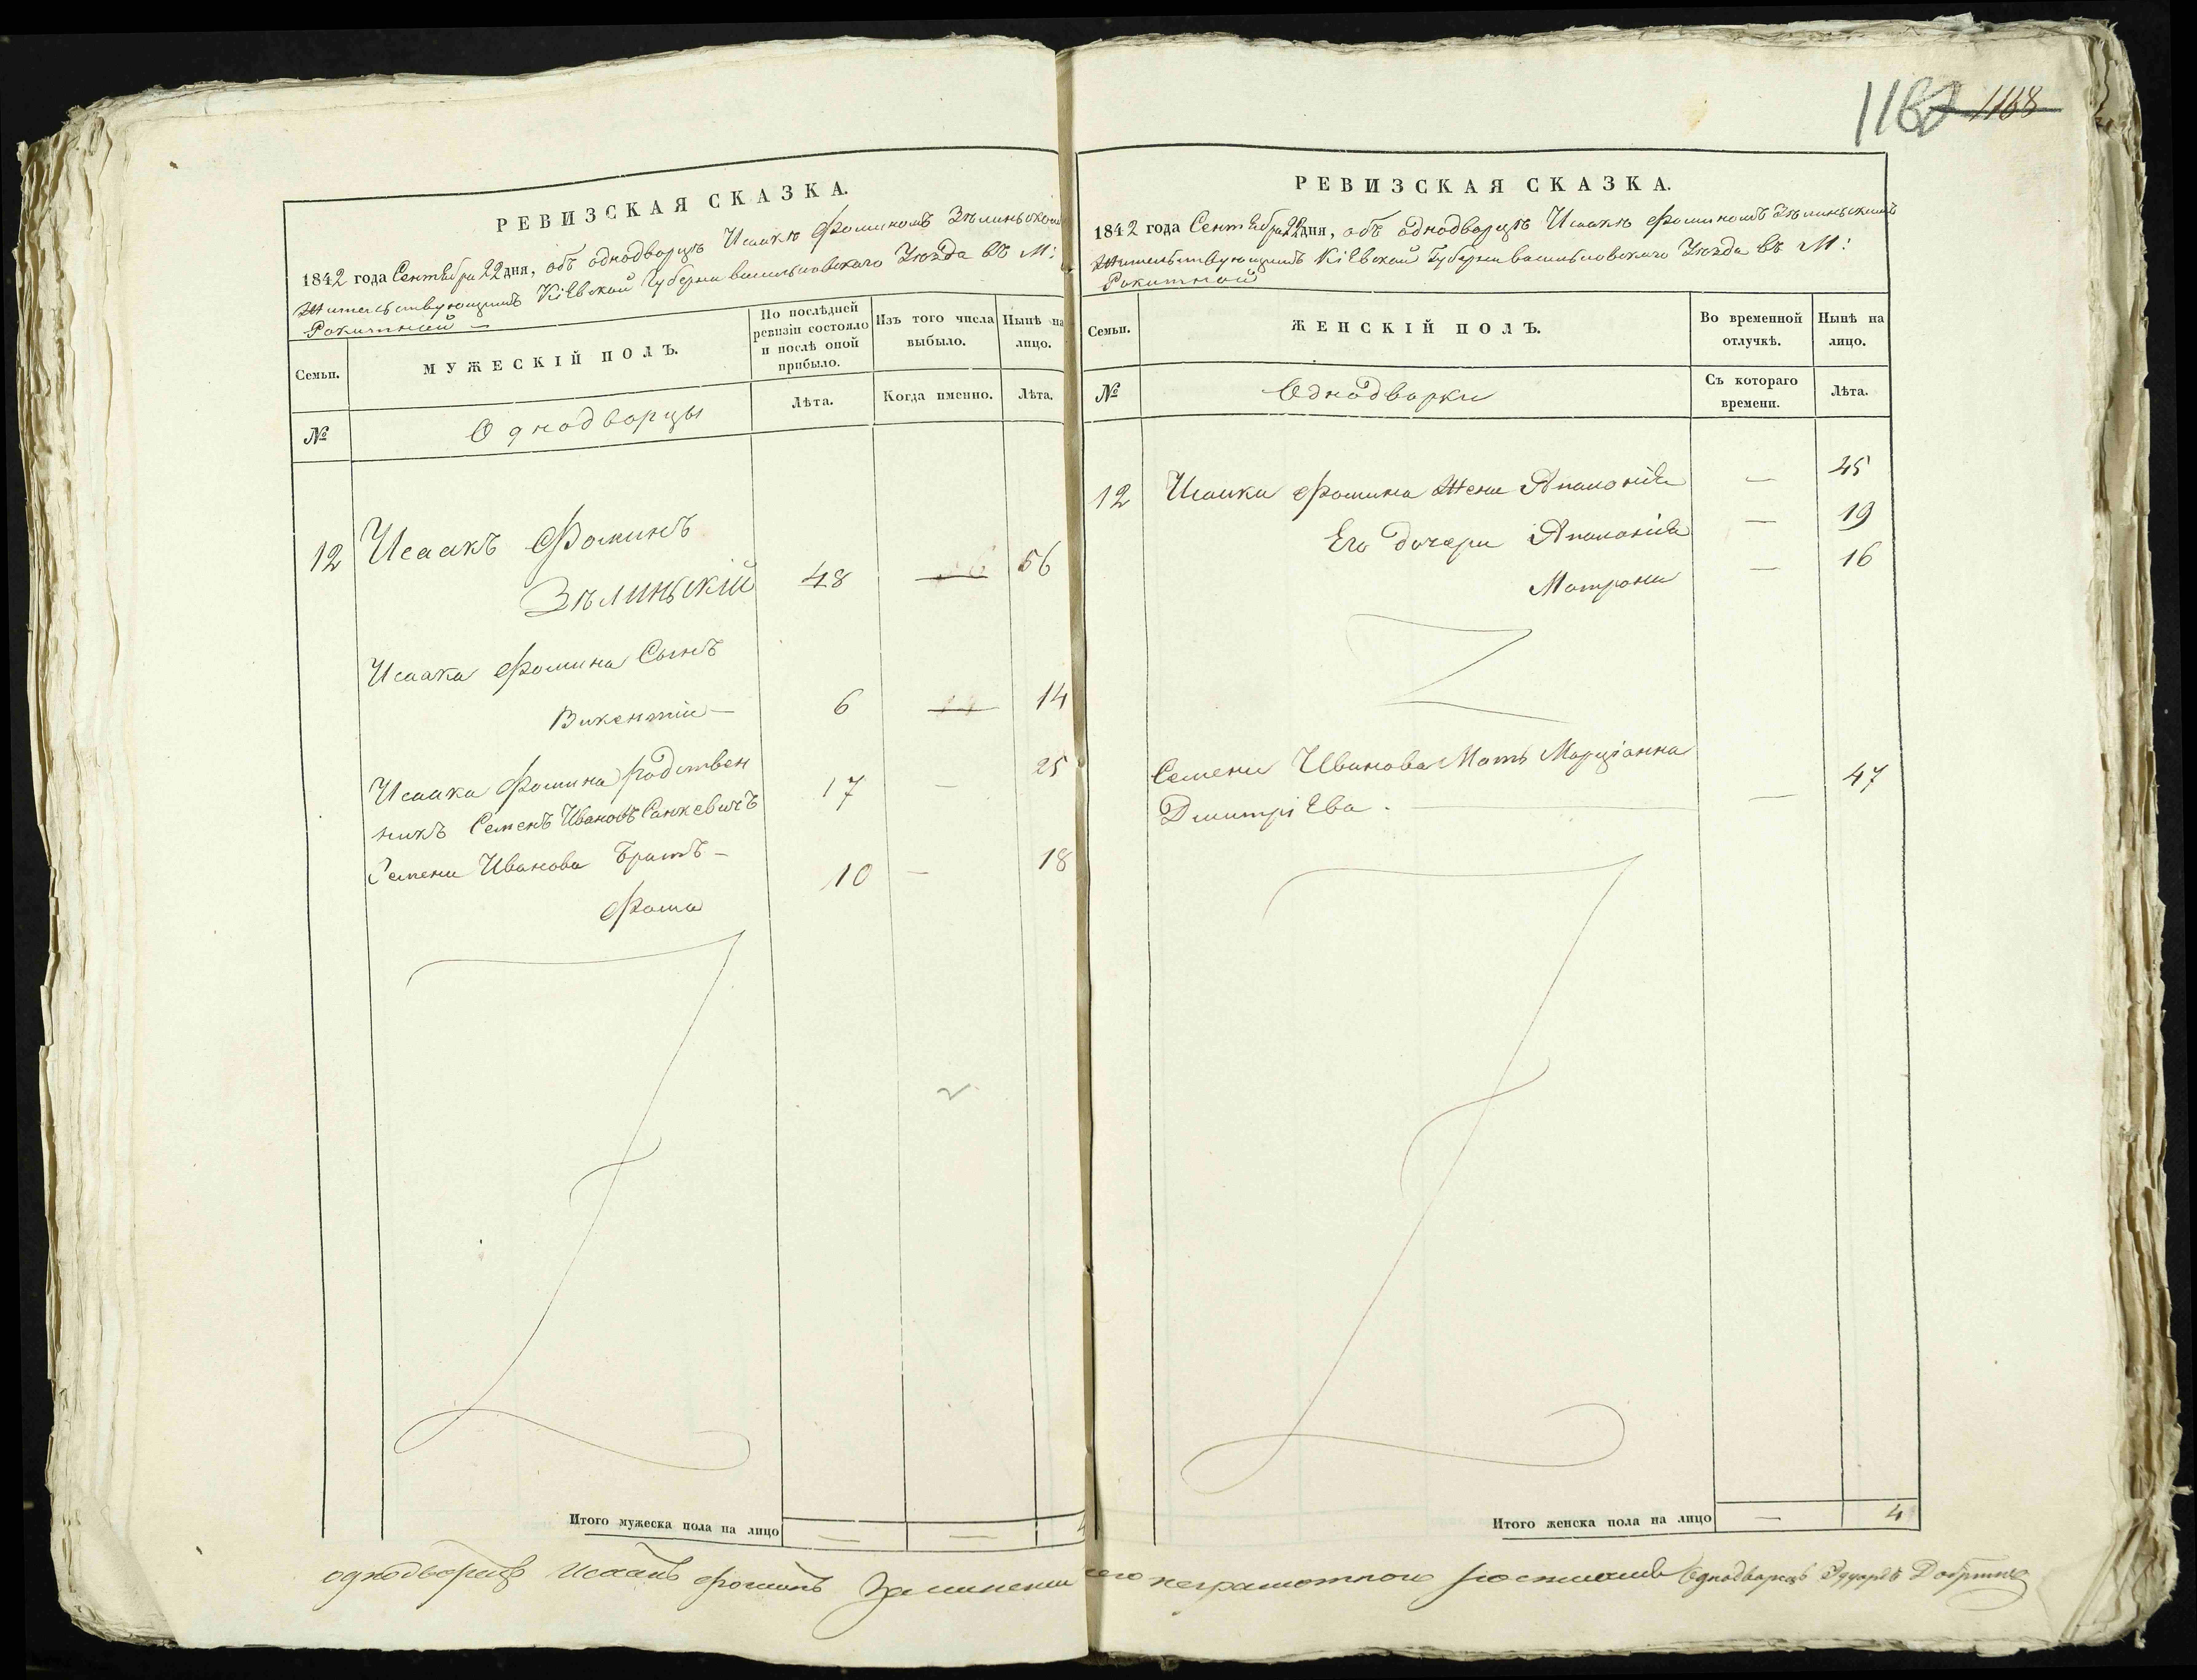 1182 1168
РЕВИЗСКАЯ СКАЗКА.
1842 года Сентебра 22 дня, объ однодворцѣ Исаакѣ Фоминомъ Зѣлинском
Жительствующимъ Кіевской Губерни василковскаго Уюзда въ М:
Рокитной —
Семьи.
МУЖЕСКІЙ ПОЛЪ.
По послѣдней
ревизіи состояло
и послѣ оной
прибыло.
Изъ того числа
выбыло.
Нынѣ на
лицо.
№
Однодворцы
Лѣта.
Когда именно.
Лѣта.
12 Исаакъ Фоминъ
Зѣлиньскій 48 — 56
Исаака Фомина Сынъ
Викентій — 6 — 14
Исаака Фомина родствен
никъ Семенъ Ивановъ Санкевичъ 17 — 25
Семена Иванова Братъ —
Фома 10 — 18
Итого мужеска пола на лицо — — 4
РЕВИЗСКАЯ СКАЗКА.
1842 года Сентебра 22 дня, объ однодворцѣ Исаакѣ Фоминомъ Зѣлинскимъ
Жительствующимъ Кіевской Губерни василковскаго Уюзда въ М:
Рокитной
Семьи.
ЖЕНСКІЙ ПОЛЪ.
Во временной
отлучкѣ.
Нынѣ на
лицо.
№
Однодворки
Съ котораго
времени.
Лѣта.
12 Исаака Фомина Жена Апалонія — 45
Его дочери Апалонія — 19
Матрона — 16
Семена Иванова Мать Марціанна
Дмитріева. — 47
Итого женска пола на лицо — 4
однодворецъ Исаакъ Фоминъ его неграмотного Однодворецъ Эдуардъ